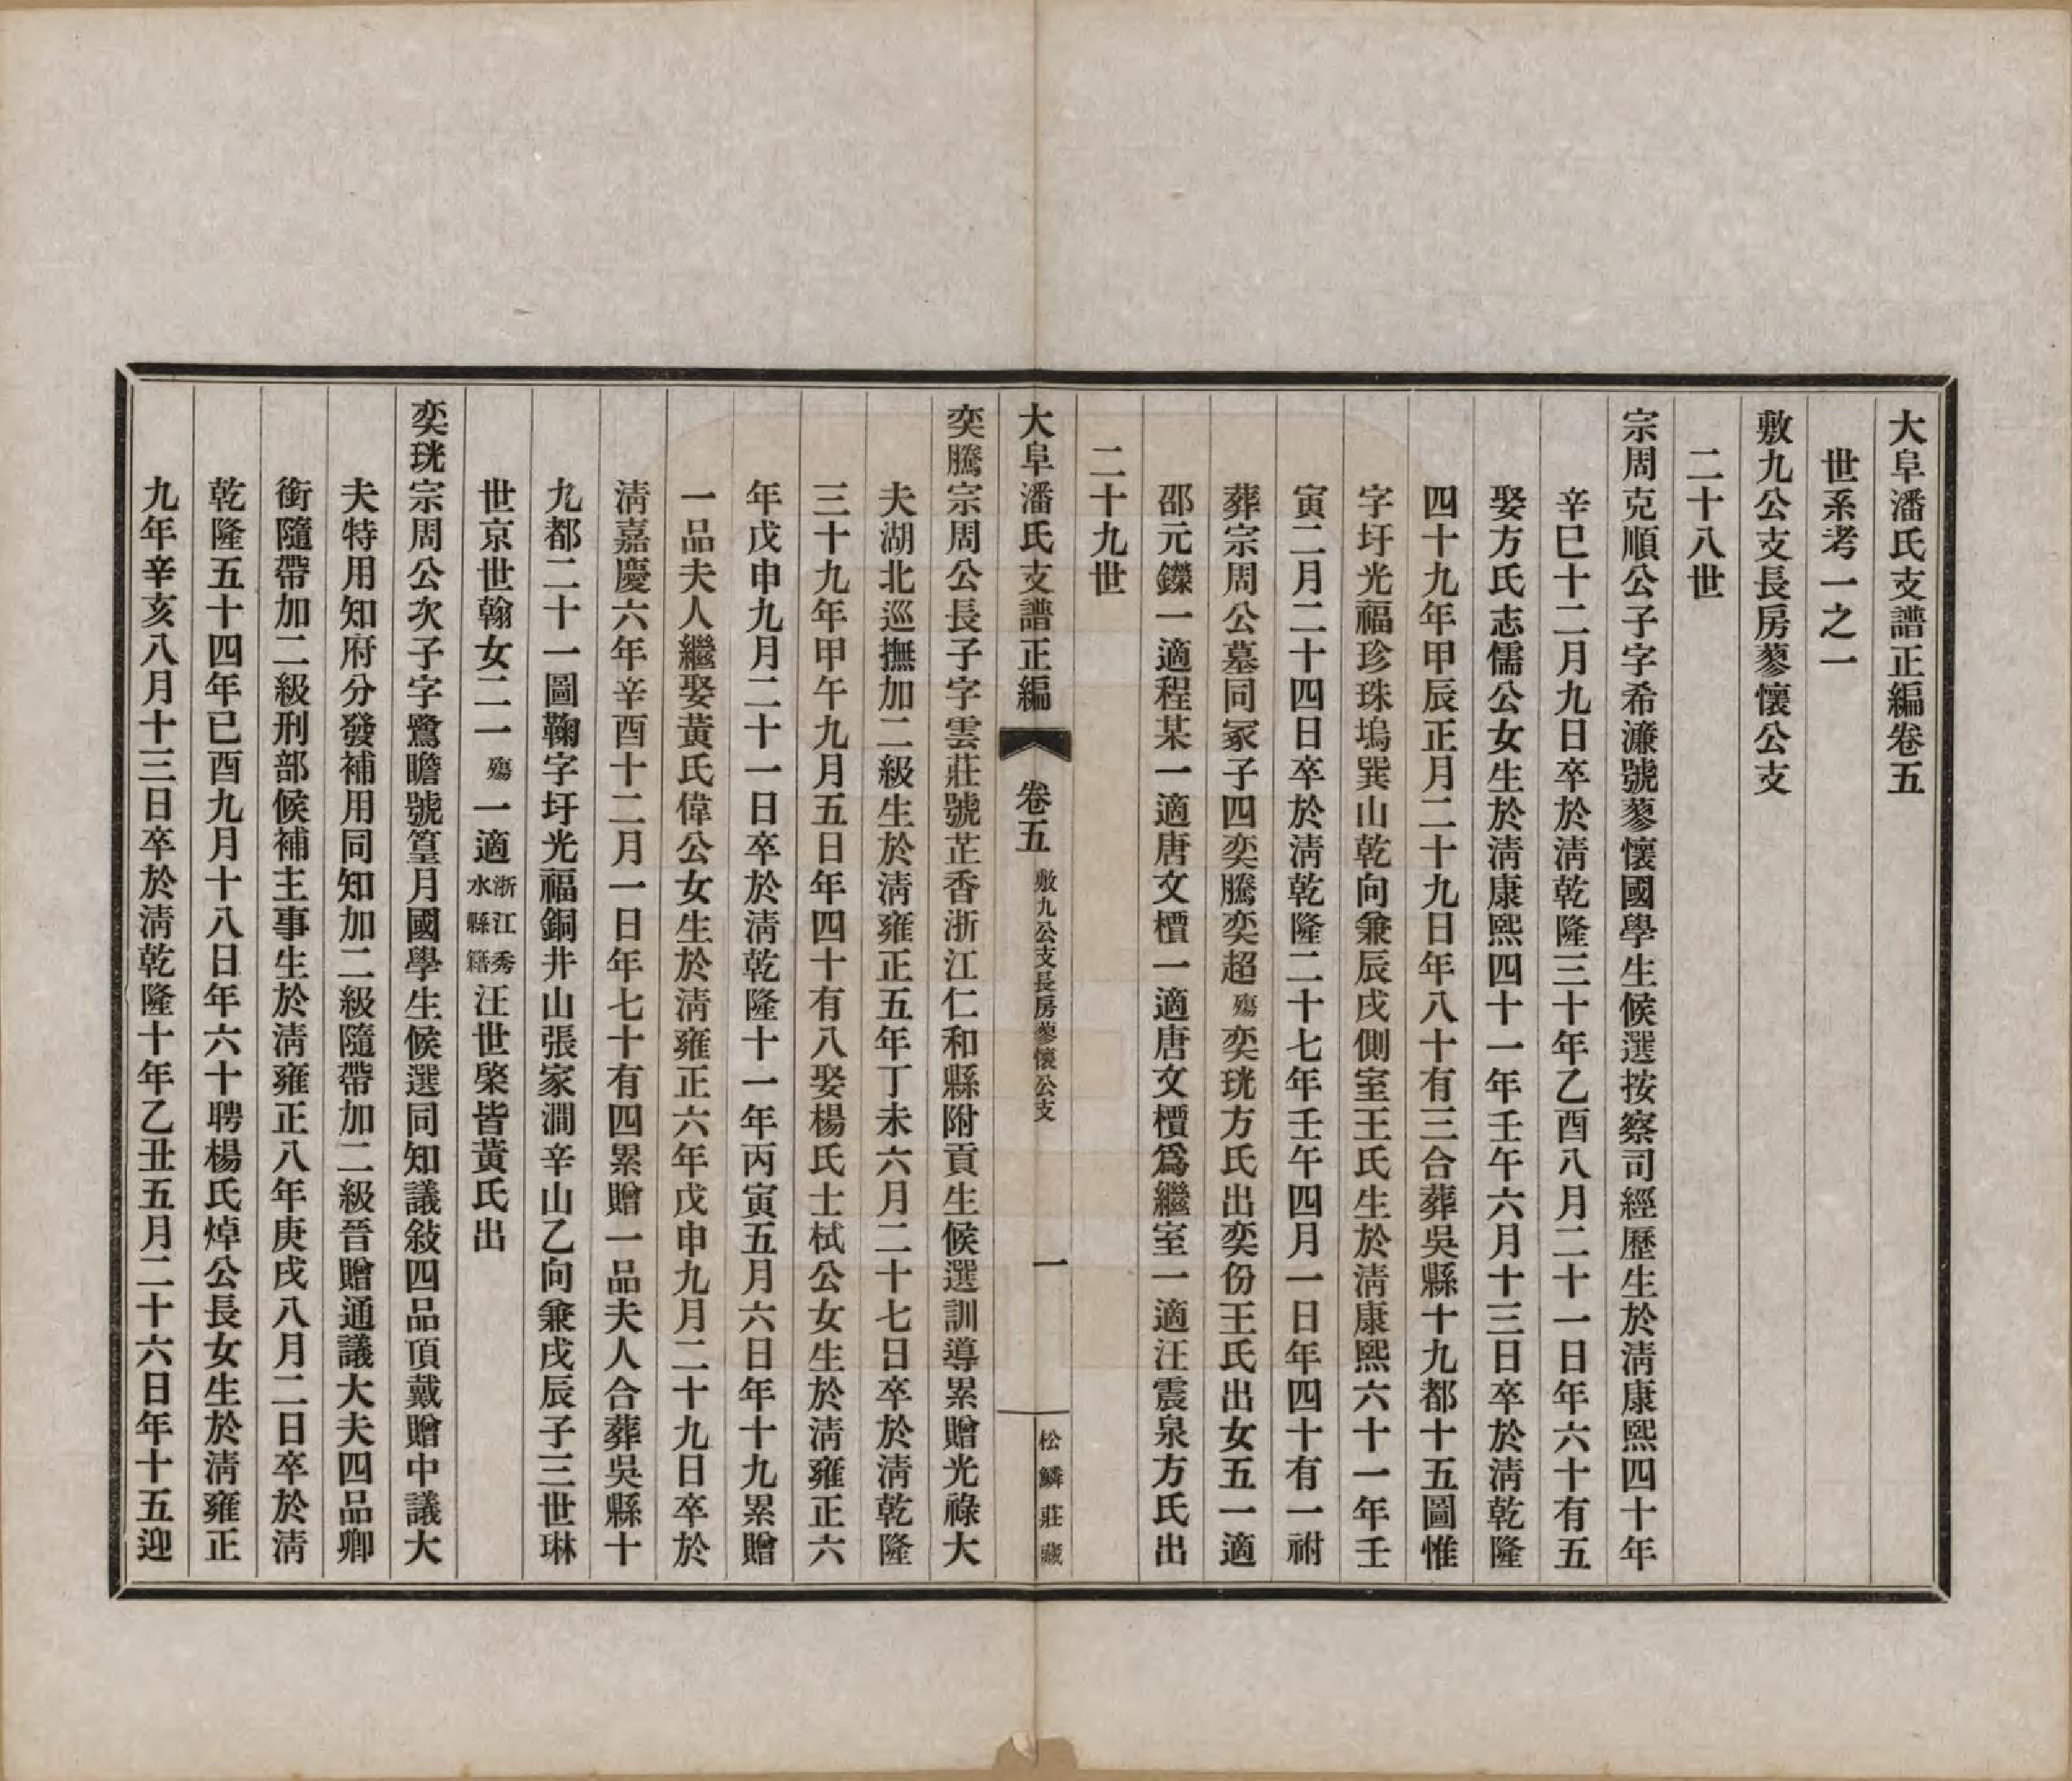 大阜潘氏支譜正編卷五
世系考一之一
敷九公支長房蓼懷公支
二十八世
宗周克順公子字希濂號蓼懷國學生候選按察司經歷生於淸康熙四十年
辛巳十二月九日卒於淸乾隆三十年乙酉八月二十一日年六十有五
娶方氏志儒公女生於淸康熙四十一年壬午六月十三日卒於淸乾隆
四十九年甲辰正月二十九日年八十有三合葬吳縣十九都十五圖惟
字圩光福珍珠塢巽山乾向兼辰戌側室王氏生於淸康熙六十一年壬
寅二月二十四日卒於淸乾隆二十七年壬午四月一日年四十有一祔
葬宗周公墓同冢子四奕騰奕超殤奕珖方氏出奕份王氏出女五一適
邵元鑅一適程某一適唐文櫝一適唐文櫝爲繼室一適汪震泉方氏出
二十九世
大阜潘氏支譜正編 卷五 敷九公支長房蓼懷公支 一 松鱗莊藏
奕騰宗周公長子字雲莊號芷香浙江仁和縣附貢生候選訓導累贈光祿大
夫湖北巡撫加二級生於淸雍正五年丁未六月二十七日卒於淸乾隆
三十九年甲午九月五日年四十有八娶楊氏士栻公女生於淸雍正六
年戊申九月二十一日卒於淸乾隆十一年丙寅五月六日年十九累贈
一品夫人繼娶黃氏偉公女生於淸雍正六年戊申九月二十九日卒於
淸嘉慶六年辛酉十二月一日年七十有四累贈一品夫人合葬吳縣十
九都二十一圖鞠字圩光福銅井山張家澗辛山乙向兼戌辰子三世琳
世京世翰女二一殤一適浙江秀水縣籍汪世棨皆黃氏出
奕珖宗周公次子字鷺瞻號篁月國學生候選同知議敍四品頂戴贈中議大
夫特用知府分發補用同知加二級隨帶加二級晉贈通議大夫四品卿
銜隨帶加二級刑部候補主事生於淸雍正八年庚戌八月二日卒於淸
乾隆五十四年已酉九月十八日年六十聘楊氏焯公長女生於淸雍正
九年辛亥八月十三日卒於淸乾隆十年乙丑五月二十六日年十五迎